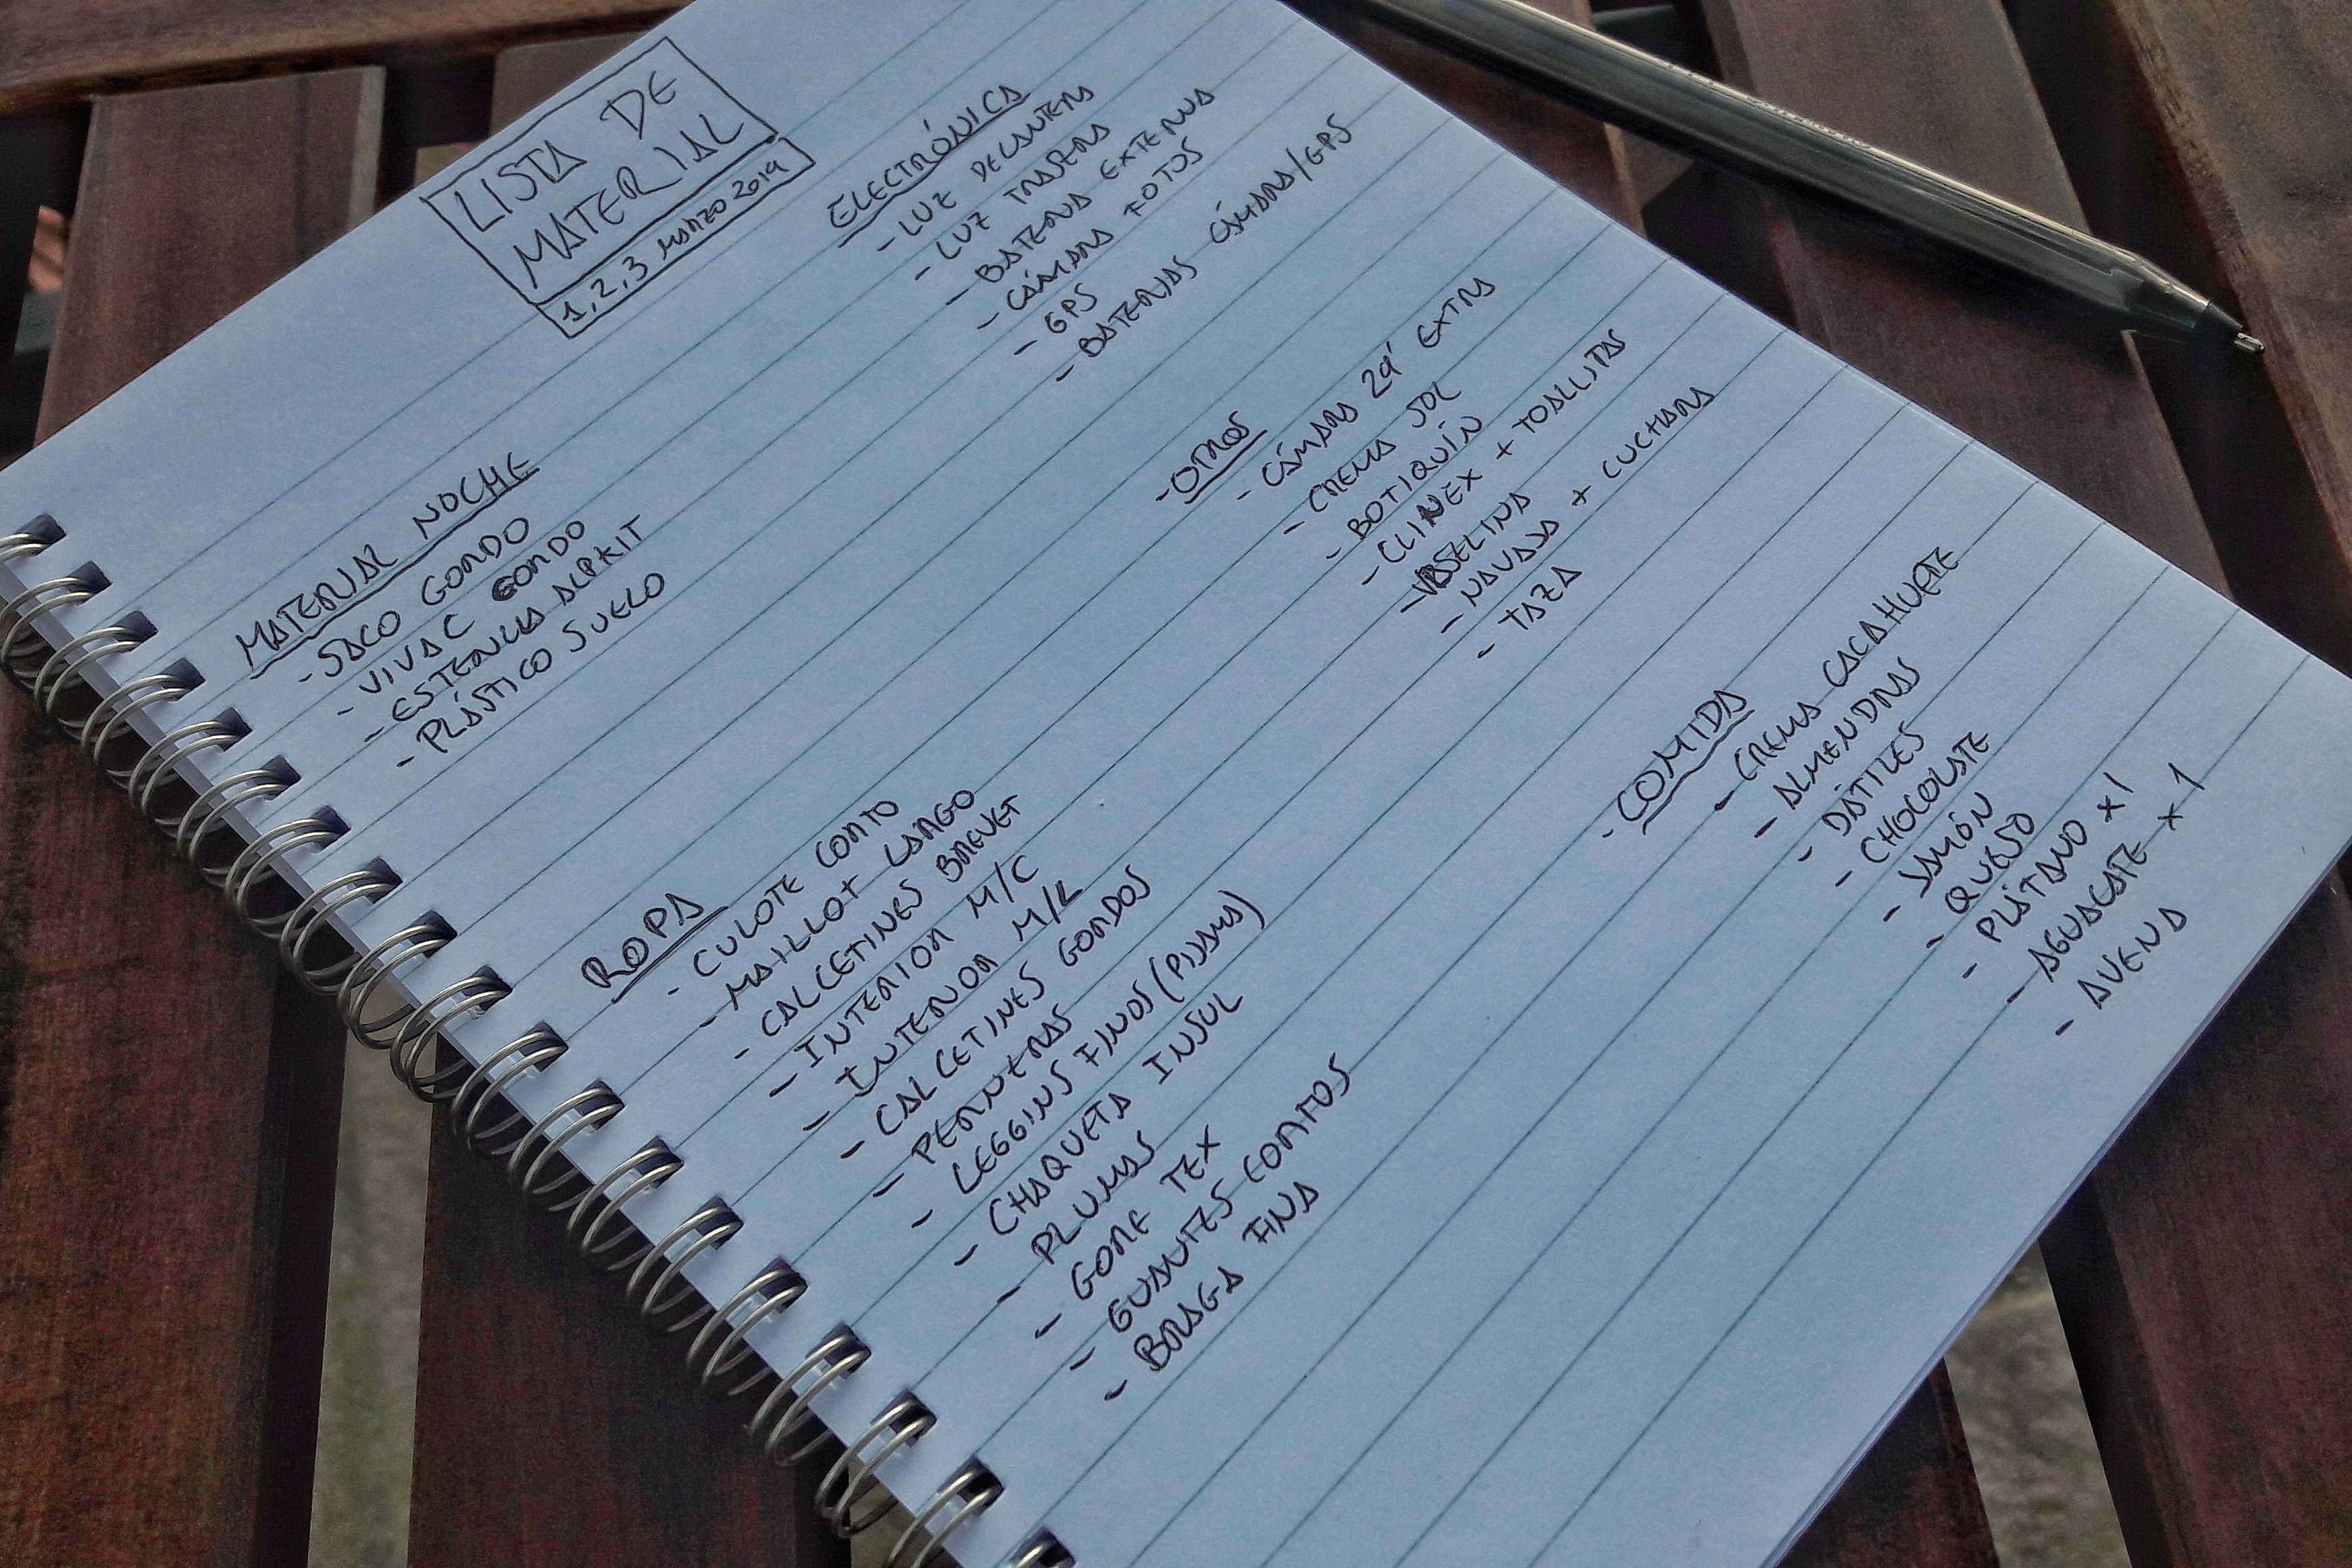 LISTA DE
MATERIAL
1, 2, 3 MARZO 2019
MATERIAL NOCHE
- SACO GORDO
- VIVAC GORDO
- ESTERILLA ALPKIT
- PLÁSTICO SUELO
ROPA
- CULOTE CORTO
- MAILLOT LARGO
- CALCETINES BREVET
- INTERIOR M/C
- INTERIOR M/L
- CALCETINES GORDOS
- PERNERAS
- LEGGINS FINOS (PIJAMA)
- CHAQUETA INSUL
- PLUMAS
- GORE TEX
- GUANTES CORTOS
- BRAGA FINA
ELECTRÓNICA
- LUZ DELANTERA
- LUZ TRASERA
- BATERIA EXTERNA
- CÁMARA FOTOS
- GPS
- BATERIAS CÁMARA/GPS
- OTROS
- CÁMARA 29" EXTRA
- CREMA SOL
- BOTIQUÍN
- CLINEX + TOALLITAS
- VASELINA
- NAVAJA + CUCHARA
- TAZA
- COMIDA
- CREMA CACAHUETE
- ALMENDRAS
- DÁTILES
- CHOCOLATE
- JAMÓN
- QUESO
- PLÁTANO x1
- AGUACATE x 1
- AVENA